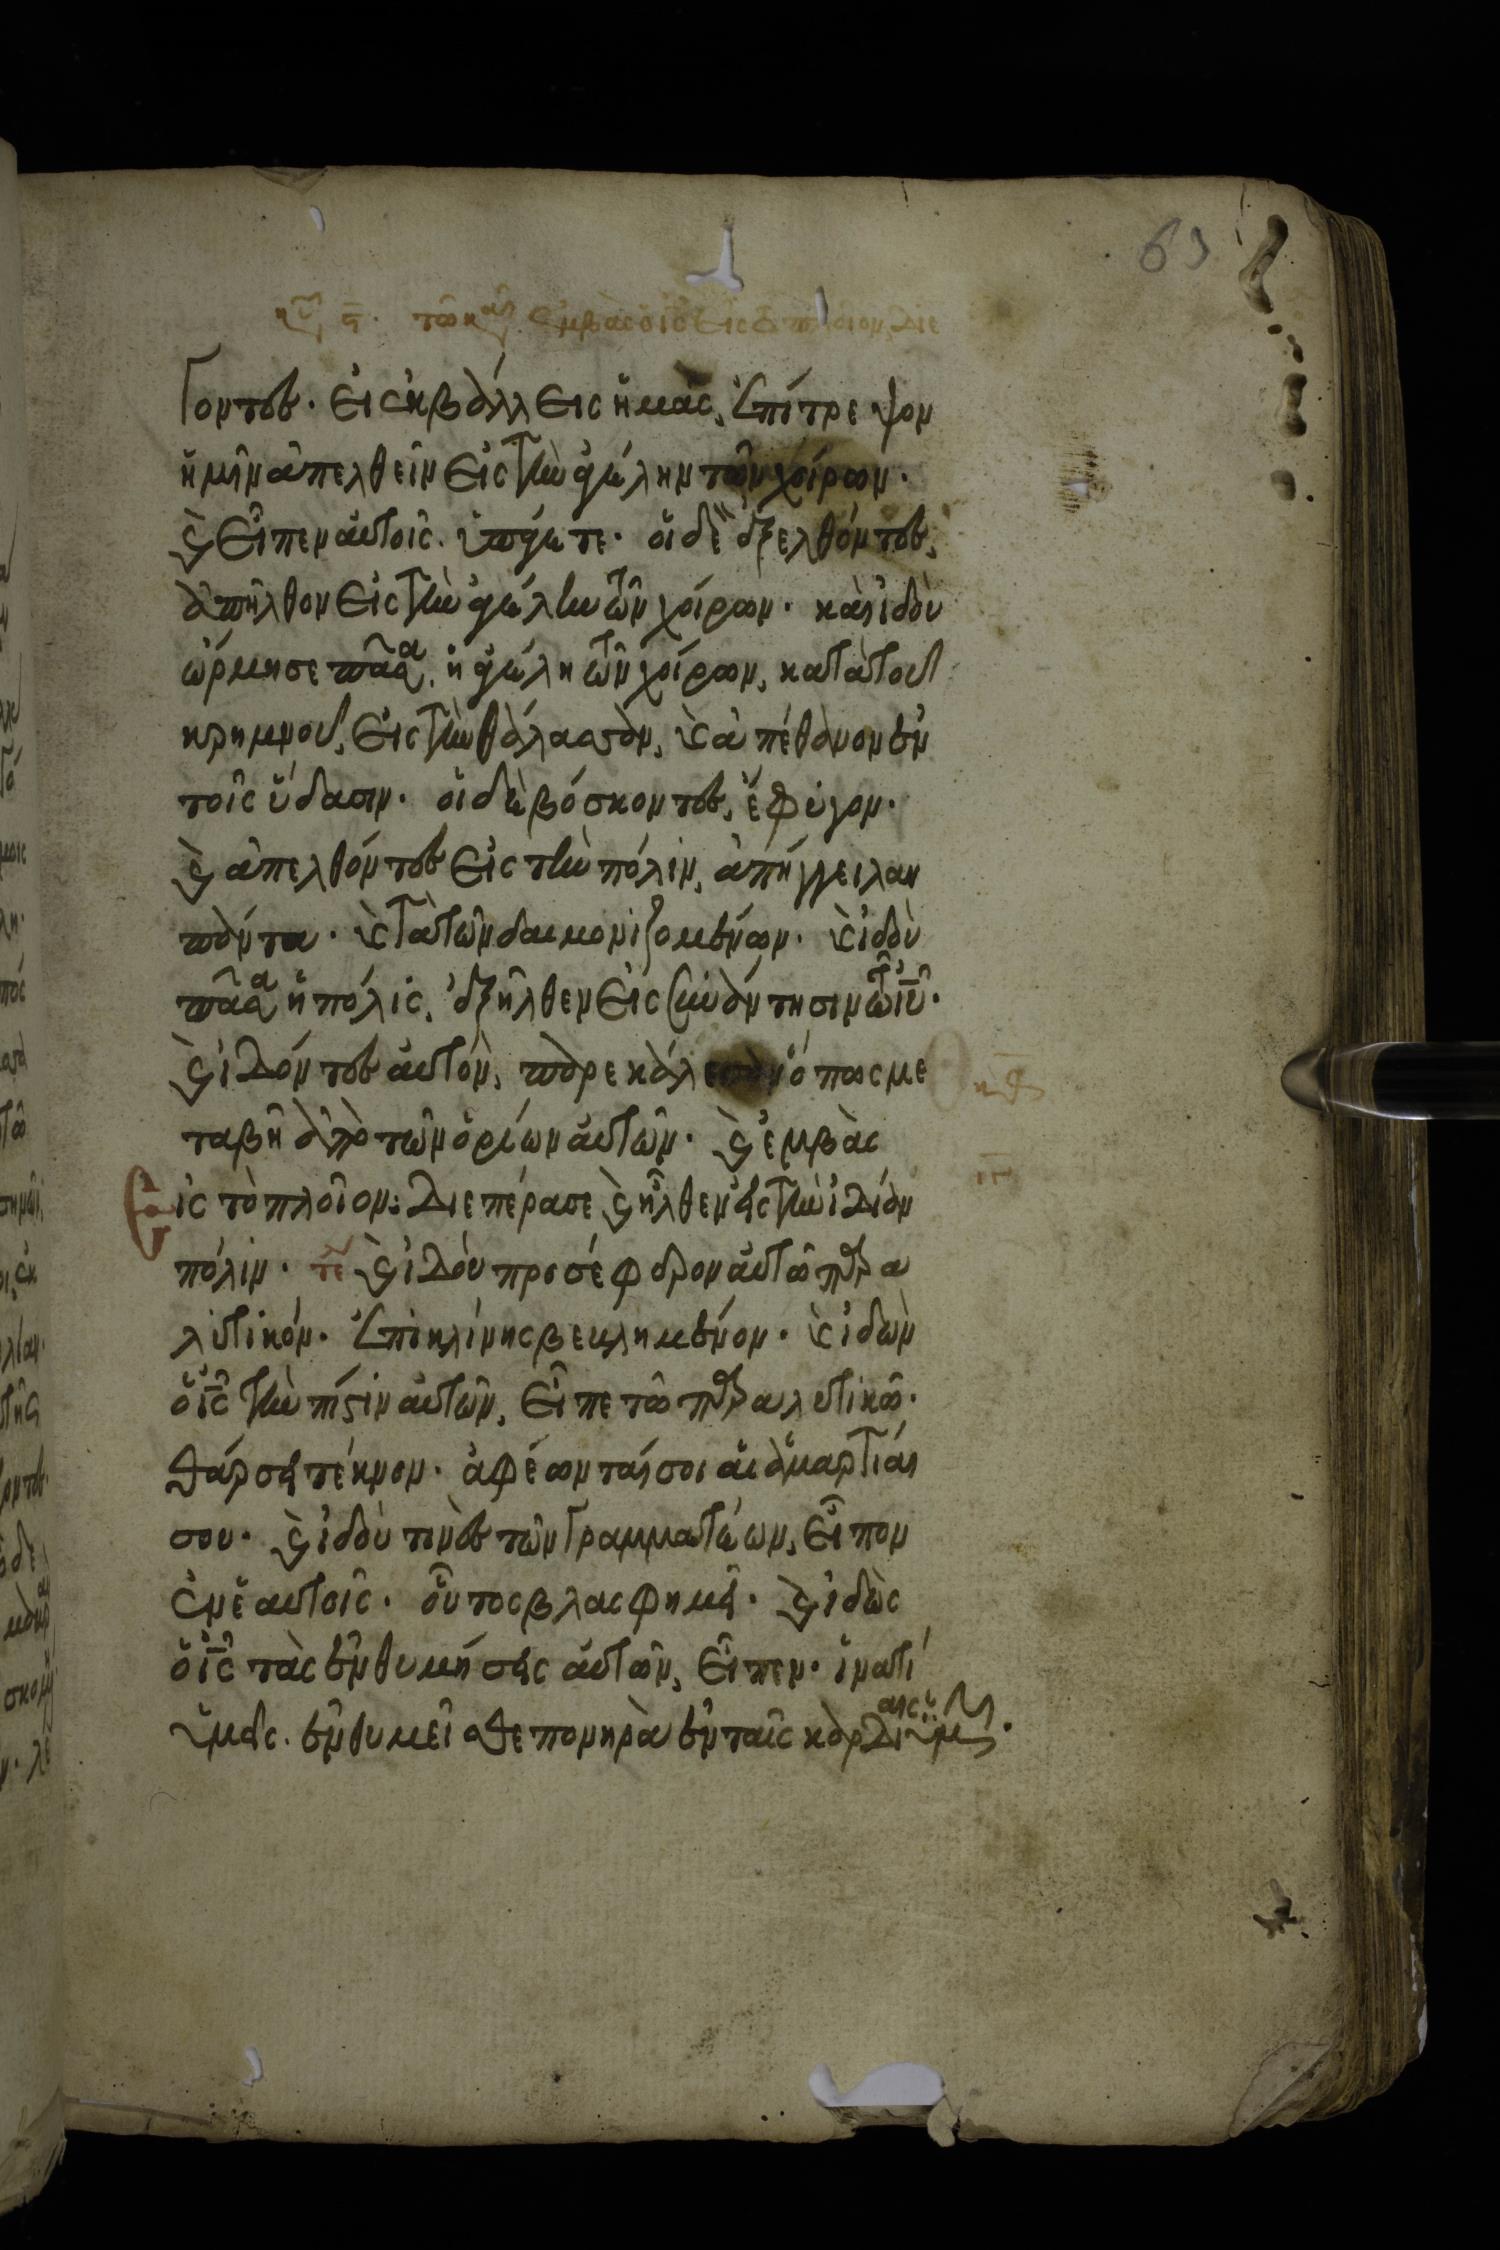 63
τῶ κ αι ἐμβὰς ὁ ις εἰς τὸ πλοῖον, διε
γοντες. εἰ ἐκβάλλεις ἡμᾶς, ἐπίτρεψον
ἡμῖν ἀπελθεῖν εἰς τὴν ἀγέλην τῶν χοίρων.
καὶ εἶπεν αὐτοῖς. ὑπάγετε. οἱ δὲ ἐξελθόντες,
ἀπῆλθον εἰς τὴν ἀγέλην τῶν χοίρων. καὶ ἰδοὺ
ὥρμησε πᾶσα, ἡ ἀγέλη τῶν χοίρων, κατὰ τοῦ
κρημνοῦ, εἰς τὴν θάλασσαν, καὶ ἀπέθανον ἐν
τοῖς ὕδασιν. οἱ δὲ βόσκοντες, ἔφυγον.
καὶ ἀπελθόντες εἰς τὴν πόλιν, ἀπήγγειλαν
πάντα. καὶ τὰ τῶν δαιμονιζομένων. καὶ ἰδοὺ
πᾶσα ἡ πόλις, ἐξῆλθεν εἰς συνάντησιν τῶ ιυ.
καὶ ἰδόντες αὐτὸν, παρεκάλεσαν ὅπως με
ταβῆ ἀπὸ τῶν ὁρίων αὐτῶν. καὶ ἐμβὰς
εἰς τὸ πλοῖον: διεπέρασε καὶ ἦλθεν εἰς τὴν ἰδίαν
πόλιν. καὶ ἰδοὺ προσέφερον αὐτῶ παρα
λυτικόν. ἐπὶ κλίνης βεβλημένον. καὶ ἰδὼν
ὁ ις τὴν πίστιν αὐτῶν, εἶπε τῶ παραλυτικῶ.
θάρσει τέκνον. ἀφέωνταί σοι αἱ ἁμαρτίαι
σου. καὶ ἰδοὺ τινὲς τῶν γραμματέων, εἶπον
ἐν ἑαυτοῖς. οὗτος βλασφημεῖ. καὶ ἰδὼς
ὁ ις τὰς ἐνθυμήσεις αὐτῶν, εἶπεν. ἱνατί
ὑμεῖς. ἐνθυμεῖσθε πονηρὰ ἐν ταῖς καρδίαις ὑμῶν.